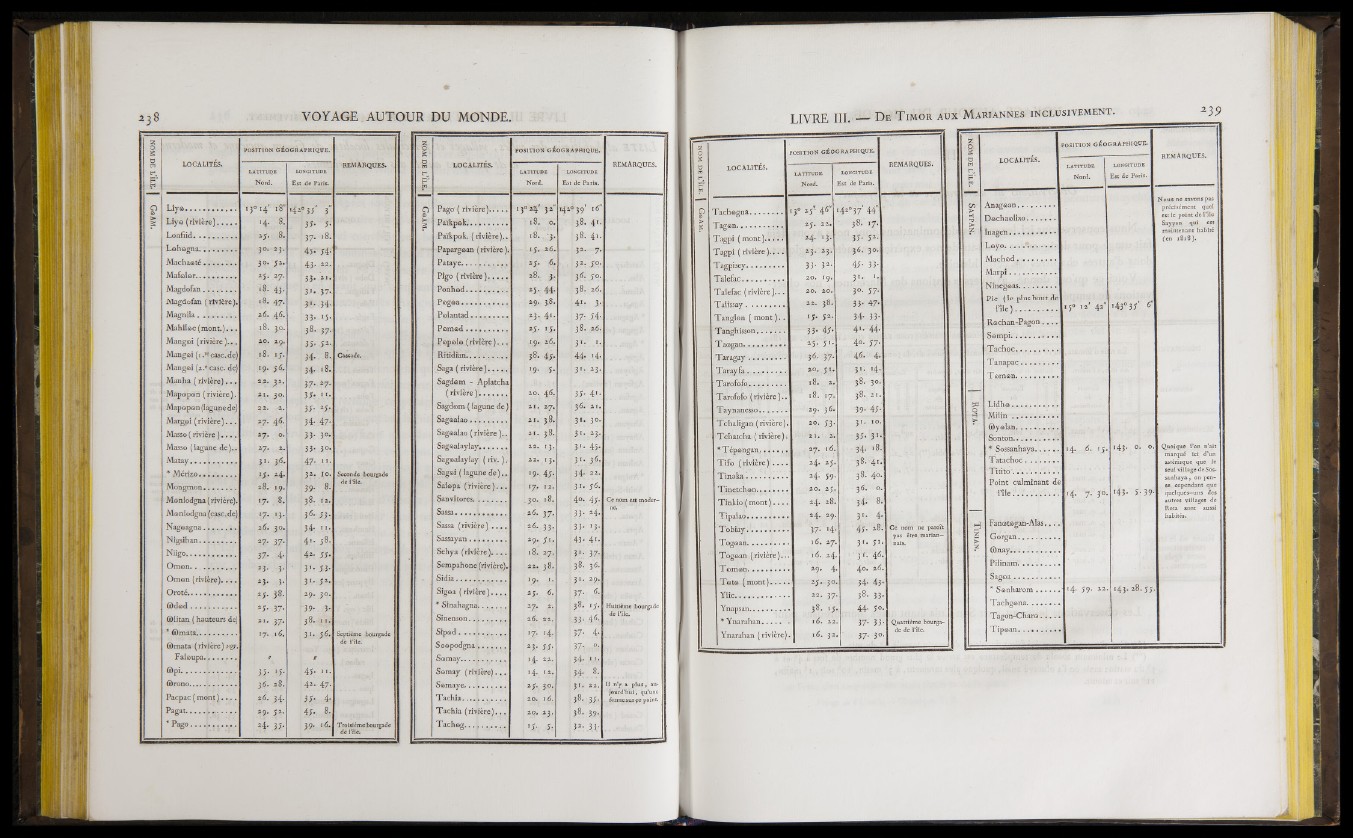 238
VOYAGE AUTOUR DU MONDE.
NOM DE L'ÎLE.
LOCALITÉS.
POSITION GÉOGRAPHIQUE.
LATITUDE Nord.
LONGITUDE Est de Paris.
REMARQUES.
GUAM.
Llyo (rivière)..... 14. 8. 35. 5.
Lonfiid........ 25. 8. 37. 18.
Lohagna........ 30. 23. 45. 54.
Machaoté........ 30. 52. 43. 22.
Mafolor........ 25. 27. 53. 21.
Magdofan........ 18. 43. 31. 37.
Magdofan (rivière). 18. 47. 31. 34.
Magnila........ 26. 46. 33. 15.
Mahlloc (mont.)... 18. 30. 38. 37.
Mangoi (rivière)... 20. 29. 35. 52.
Mangoi (1.re casc. de) 18. 15. 34. 8. Cascade.
Mangoi (2.e casc. de) 19. 56. 34. 18.
Manha (rivière)... 22. 32. 37. 27.
Mapopon (rivière). 21. 30. 35. 11.
Mapopon (lagune de) 22. 2. 35. 25.
Margoi (rivière)... 27. 46. 34. 47.
Masso (rivière).... 27. 0. 33. 30.
Masso (lagune de).. 27. 2. 33. 30.
Matay......... 31. 36. 47. 11.
* Mérizo......... 15. 24. 32. 10. Seconde bourgade de l'île.
Mongmon........ 28. 19. 39. 8.
Monlodgna (rivière). 17. 8. 38. 12.
Monlodgna (casc. de) 17. 13. 36. 53.
Nagoagna........ 26. 30. 34. 11.
Nigsihan........ 27. 37. 41. 58.
Niigo.......... 37. 4. 42. 55.
Omon.......... 23. 3. 31. 53.
Omon (rivière).... 23. 3. 31. 52.
Oroté.......... 25. 38. 29. 30.
25. 37. 39. 3.
21. 37. 38. 11.
17. 16. 31. 56. Septième bourgade de l'île.
Faloupa.......
33. 15. 45. 11.
36. 28. 42. 47.
Pacpac (mont).... 26. 34. 35. 4.
Pagat.......... 29. 52. 45. 8.
* Pago.......... 24. 35. 39. 16. Troisième bourgade de l'île.
NOM DE L'ÎLE.
LOCALITÉS.
POSITION GÉOGRAPHIQUE.
LATITUDE Nord.
LONGITUDE Est de Paris.
REMARQUES.
GUAM.
Païkpok......... 18. 0. 38. 41.
Païkpok (rivière).. 18. 3. 38. 41.
Papargoan (rivière). 15. 26. 32. 7.
Pataye.......... 25. 6. 32. 50.
Pigo (rivière)..... 28. 3. 36. 50.
Ponhod......... 25. 44. 38. 26.
Pogoa.......... 29. 38. 41. 3.
Polantad........ 23. 41. 37. 54.
Pomod.......... 25. 15. 38. 26.
Popolo (rivière)... 19. 26. 31. 1.
Ritidian......... 38. 45. 44. 14.
Saga (rivière)..... 19. 5. 31. 23.
Sagdom - Aplatcha (rivière)....... 20. 46. 35. 41.
Sagdom (lagune de) 21. 27. 36. 21.
Sagoalao........ 21. 38. 31. 30.
Sagoalao (rivière).. 21. 38. 31. 23.
Sagoalaylay...... 22. 13. 31. 45.
Sagoalaylay (riv.). 22. 13. 31. 36.
Sagoi (lagune de).. 19. 45. 34. 22.
Salopa (rivière)... 17. 12. 31. 56.
Sanvitores....... 30. 18. 40. 45. Ce nom est moderne.
Sassa.......... 26. 37. 33. 24.
Sassa (rivière).... 26. 33. 31. 13.
Sassayan........ 29. 51. 43. 41.
Sehya (rivière).... 18. 27. 31. 37.
Sempahone (rivière). 22. 38. 38. 36.
Sidia.......... 19. 1. 31. 29.
Sigoa (rivière).... 25. 6. 37. 6.
* Sinahagna....... 27. 2. 38. 15. Huitième bourgade de l'île.
Sinenson........ 26. 22. 33. 46.
Sipod.......... 17. 14. 37. 4.
Soopodgna....... 23. 55. 37. 0.
Somay.......... 14. 22. 34. 11.
Somay (rivière)... 14. 12. 34. 8.
Somaye......... 25. 30. 31. 22. Il n'y a plus, aujourd'hui, qu'une
Tachia.......... 20. 16. 38. 35.
Tachia (rivière)... 20. 23. 38. 39.
Tachog.......... 15. 5. 32. 33.
LIVRE III. — DE TIMOR AUX MARIANNES INCLUSIVEMENT.
239
NOM DE L'ÎLE.
LOCALITÉS.
POSITION GÉOGRAPHIQUE.
LATITUDE Nord.
LONGITUDE Est de Paris.
REMARQUES.
GUAM.
Tachogna........ 13° 25' 46" 142° 37' 44"
Tagon.......... 25. 22. 38. 17.
Tagpi (mont)..... 24. 13. 37. 52.
Tagpi (rivière).... 23. 23. 36. 30.
Tagpisay........ 33. 32. 45. 33.
Talefac......... 20. 19. 31. 1.
Talefac (rivière)... 20. 20. 30. 57.
Talissay......... 22. 38. 33. 47.
Tanglon (mont)... 15. 52. 34. 33.
Tanghisson....... 33. 45. 41. 44.
Taogan.......... 25. 51. 40. 57.
Taragay......... 36. 37. 46. 4.
Tarayfa......... 20. 51. 31. 14.
Tarofofo........ 18. 2. 38. 30.
Tarofofo (rivière).. 18. 17. 38. 21.
Taynanesso...... 29. 36. 39. 45.
Tchaligan (rivière). 20. 53. 31. 10.
Tchatcha (rivière). 21. 2. 35. 31.
* Tépongan....... 27. 16. 34. 18.
Tifo (rivière)..... 24. 25. 38. 41.
Tinaka......... 24. 59. 38. 40.
Tinetchon....... 20. 25. 36. 0.
Tinkio (mont).... 24. 28. 34. 8.
Tipalao......... 24. 29. 31. 4.
Tobiay.......... 37. 14. 45. 28. Ce nom ne paroît pas être mariannais.
Togoan......... 16. 27. 31. 51.
Togoan (rivière)... 16. 24. 31. 46.
Tomon.......... 29. 4. 40. 26.
Toto (mont)..... 25. 30. 34. 43.
Ylic........... 22. 37. 38. 33.
Ynapsan........ 38. 15. 44. 50.
* Ynarahan...... 16. 22. 37. 33. Quatrième bourgade de l'île.
Ynarahan (rivière). 16. 32. 37. 30.
NOM DE L'ÎLE.
LOCALITÉS.
POSITION GÉOGRAPHIQUE.
LATITUDE Nord.
LONGITUDE Est de Paris.
REMARQUES.
SAYPAN.
Anagoan........
Dachaolixo.......
Inagen..........
Loyo..........
Mached.........
Marpi..........
Ninegoas........
Pic (le plus haut de l'île)....... 15° 12' 42" 143° 35' 6"
Rachan-Pagon....
Sampi..........
Tachoc.........
Tanapac........
Toman..........
Nous ne savons pas
précisément quel
est le point de l'île
Saypan qui est
maintenant habité
(en 1828).
ROTA.
Lidho..........
Milin..........
Sonton.........
* Sossanhaya...... 14. 6. 15. 143. 0. 0.
Tatachoc........
Tinto..........
Point culminant de l'île......... 14. 7. 30. 143. 5. 39.
Quoique l'on n'ait
marqué ici d'un
astérisque que le
seul village de Sossanhaya, on pense cependant que
quelques-uns des
autres villages de
Rota sont aussi
habités.
TINIAN.
Fanotogan-Alas....
Gorgan.........
Pilinom.........
Sagoa..........
* Sonharom...... 14. 59. 22. 143. 28. 55.
Tachgona........
Tagon-Charo.....
Tipoan.........